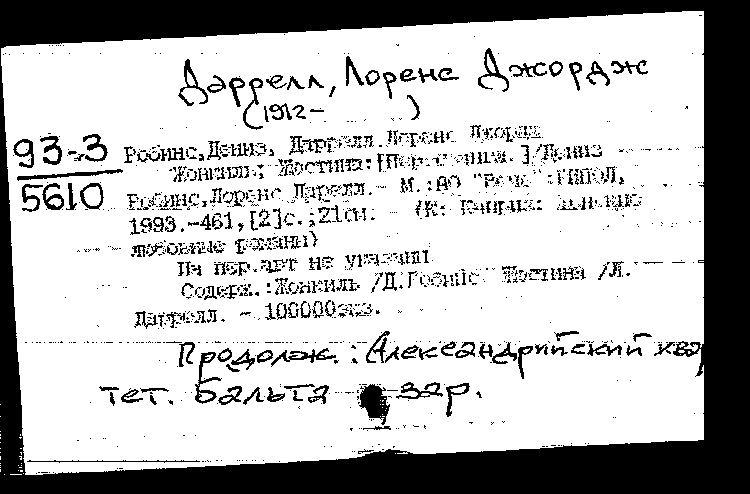 Даррелл, Лоренс Джордж
(1912-      )
93-3
5610
Робинс, Дениз, Даррелл Лоренс Джордж
Жонкиль; Жюстина: [Пер. с англ.]/Дениз
Робинс, Лоренс Даррелл.- М.:АО "Вече":РИПОЛ,
1993.-461,[2]с.;21см. - (К:
любовные романы)
На пер. авт не указаны
Содерж.:Жонкиль /Д.Робинс. Жюстина /Л.
Даррелл. - 100000экз.
Продолж.: Александрийский квар
тет. Бальтазар.